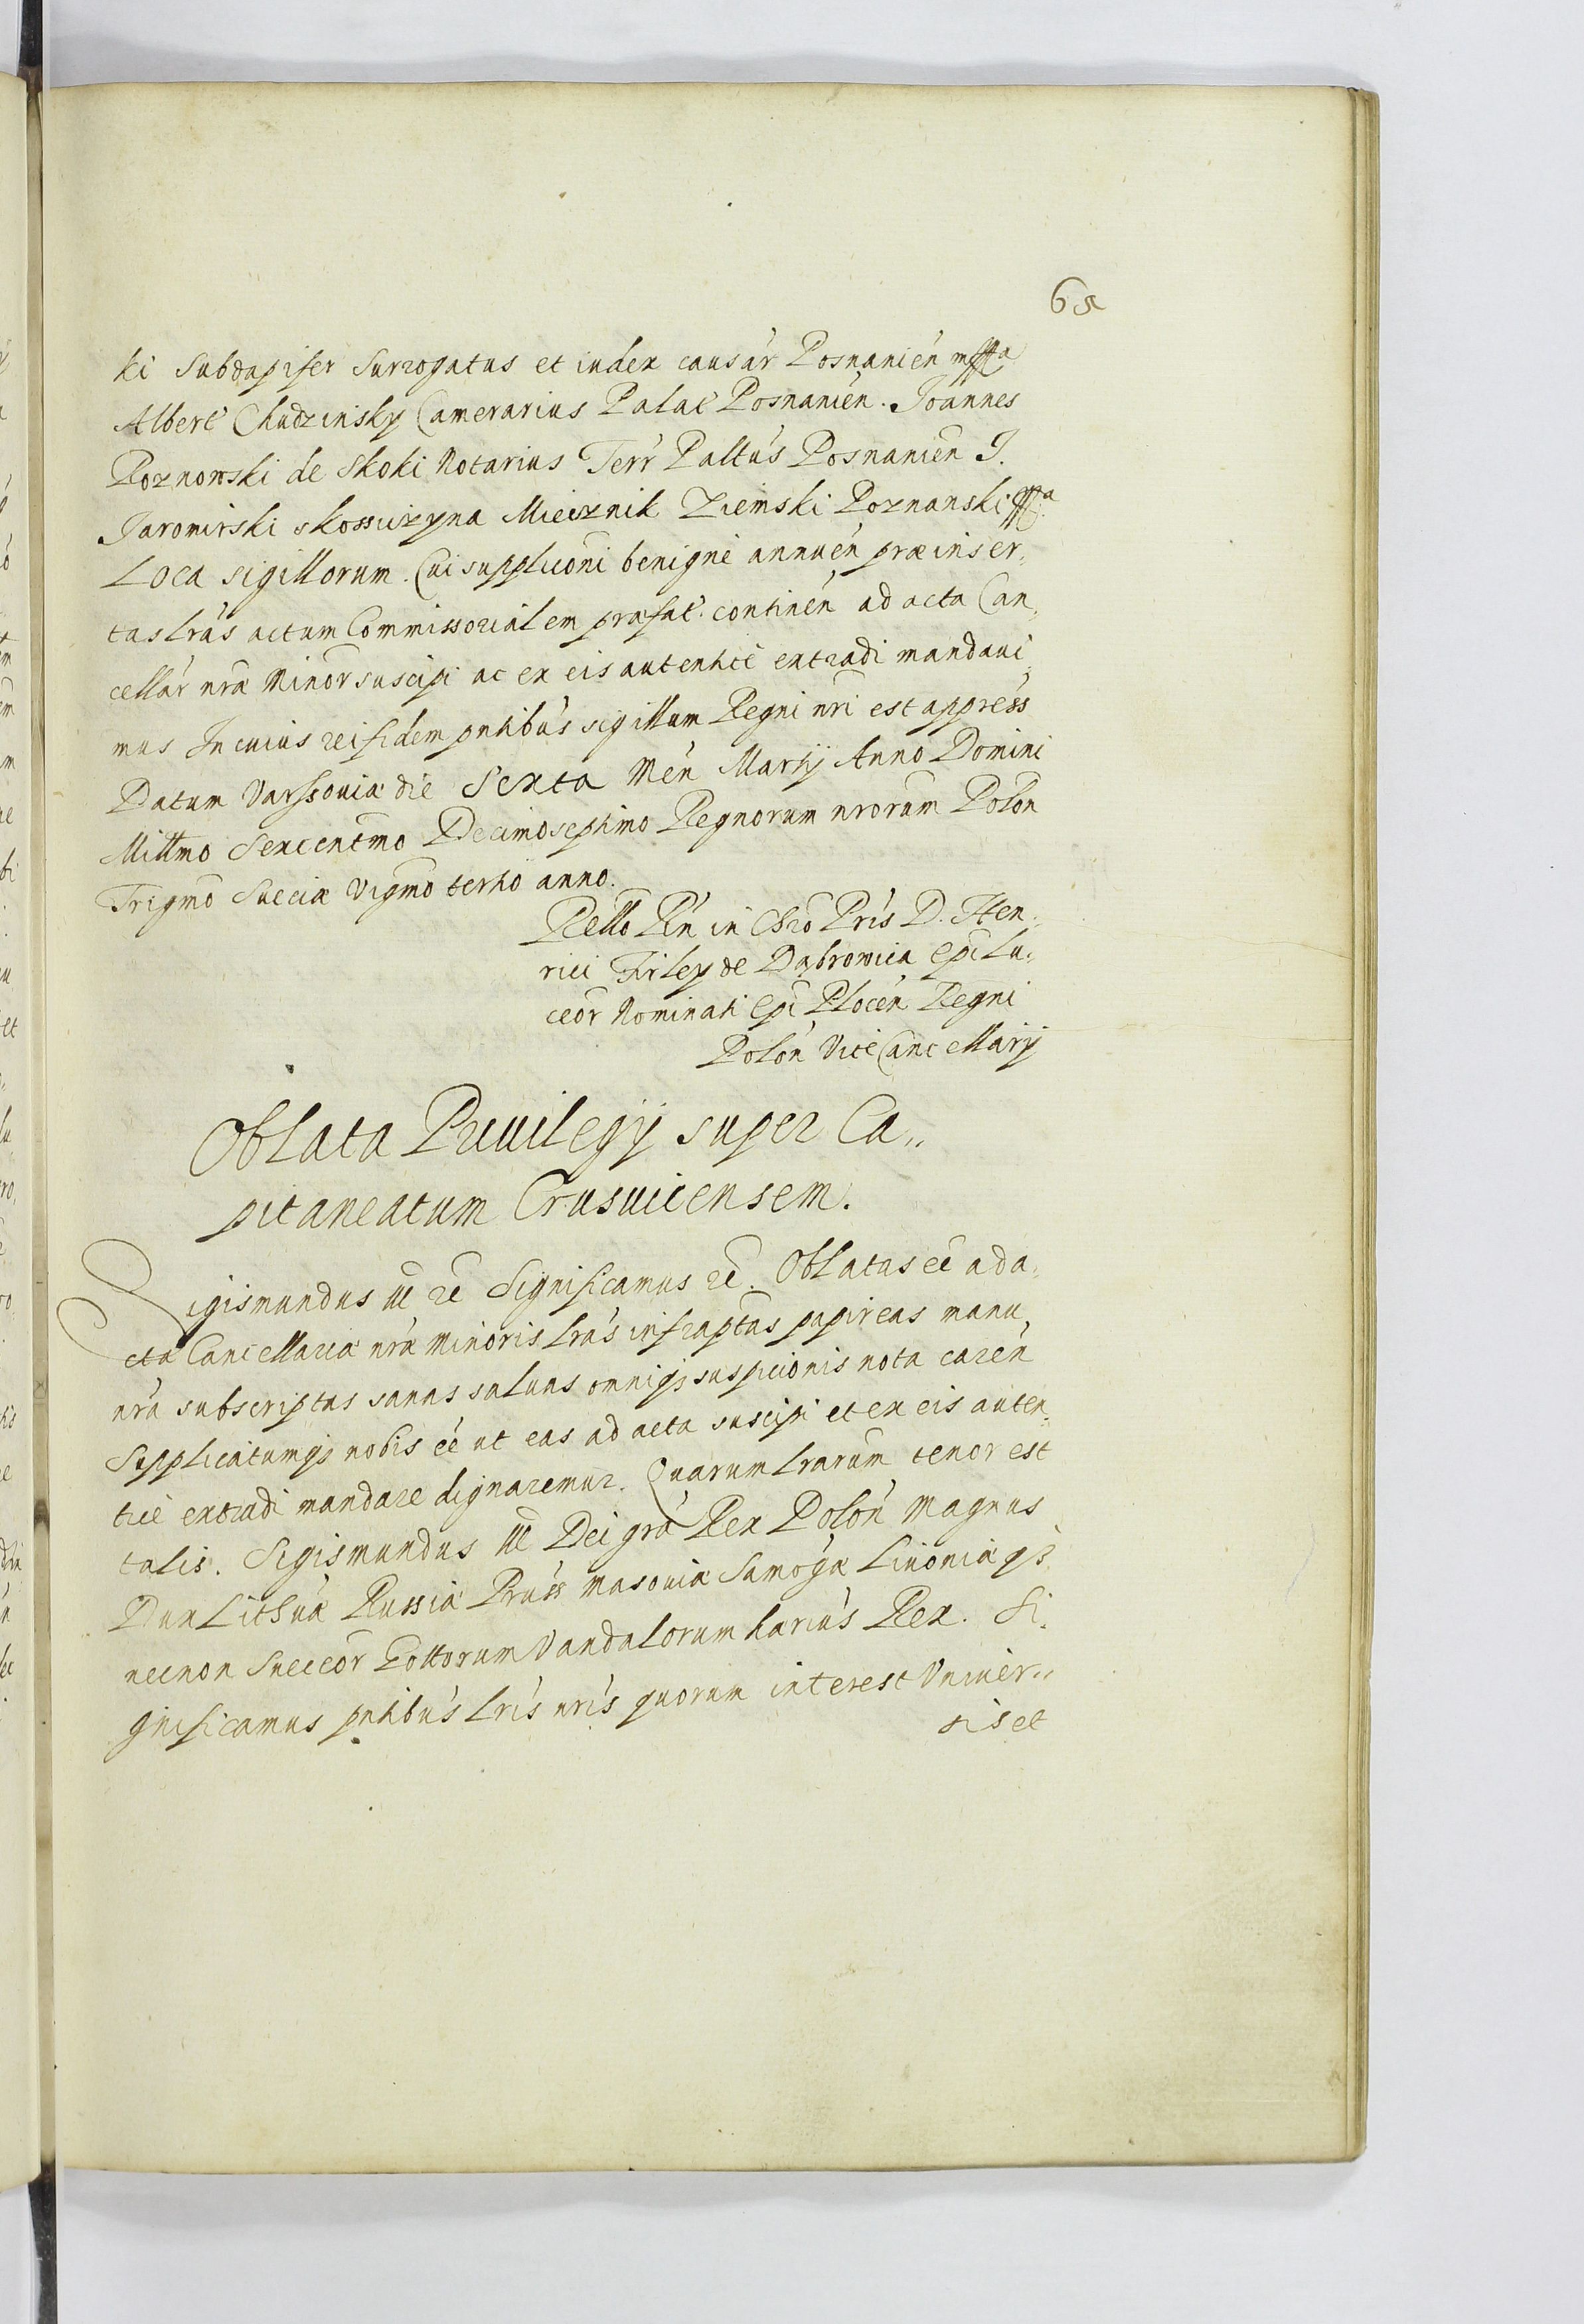 ki Subdapifer Surrogatus et iudex causar Posnanien mppa
Albert Chudzinsky Camerarius Palat Posnanien. Joannes
Roznowski de Skoki Notarius Terr Paltus Posnanien J.
Jaromirski Miecznik Ziemski Poznanski mppa
Loca sigillorum. Cui suppliconi benigne annuen præinser,
tas lras actum Commissorialem præfat. continen ad acta Can,
cellar nræ Minor suscipi ac ex eis autentice extradi mandaui,
mus In cuius rei fidem pntibus sigillum Regni nri est appress
Datum Varssouiæ die Sexta Men Martij Anno Domini
Millmo Sexcentmo Decimoseptimo Regnorum nrorum Polon
Trigmo Sueciæ Vigmo tertio anno.
Rello Rn in Chro Pris D. Hen,
rici Firley de Dąbrowica Epi Lu,
ceor Nominati Epi Plocen Regni
Polon ViceCancellarij
Oblata Priuilegij super Ca,,
pitaneatum Crusuicensem.
Sigismundus III re Significamus re. Oblatas ee ad a,
cta Cancellariæ nræ Minoris lras infraptas papireas manu,
nra subscriptas sanas saluas omniq suspicionis nota caren
Supplicatumq nobis ee ut eas ad acta suscipi et ex eis auten,
tice extradi mandare dignaremur. Quarum lrarum tenor est
talis. Sigismundus III Dei gra Rex Polon Magnus
Dux Lithuæ Russiæ Pruss Masouiæ Samogæ Liuoniæ q3
necnon Sueccor Gottorum Vandalorum harius Rex. Si,
gnificamus pntibus lris nris quorum interest Vniuer,,
sis et